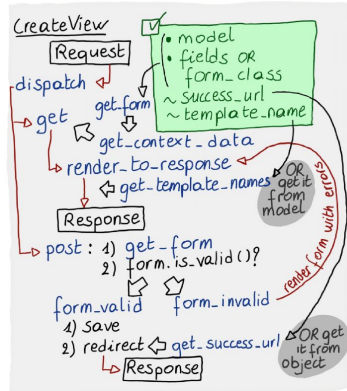 CreateView
Request
• model
• fields OR
form_class
~ success_url
~ template_name
dispatch
get_form
get
get_context_data
render_to_response
get_template_names
OR
get it
from
model
Response
render form with errors
post: 1) get_form
2) form.is_valid()?
form_valid
form_invalid
1) save
2) redirect
get_success_url
OR get
it from
object
Response